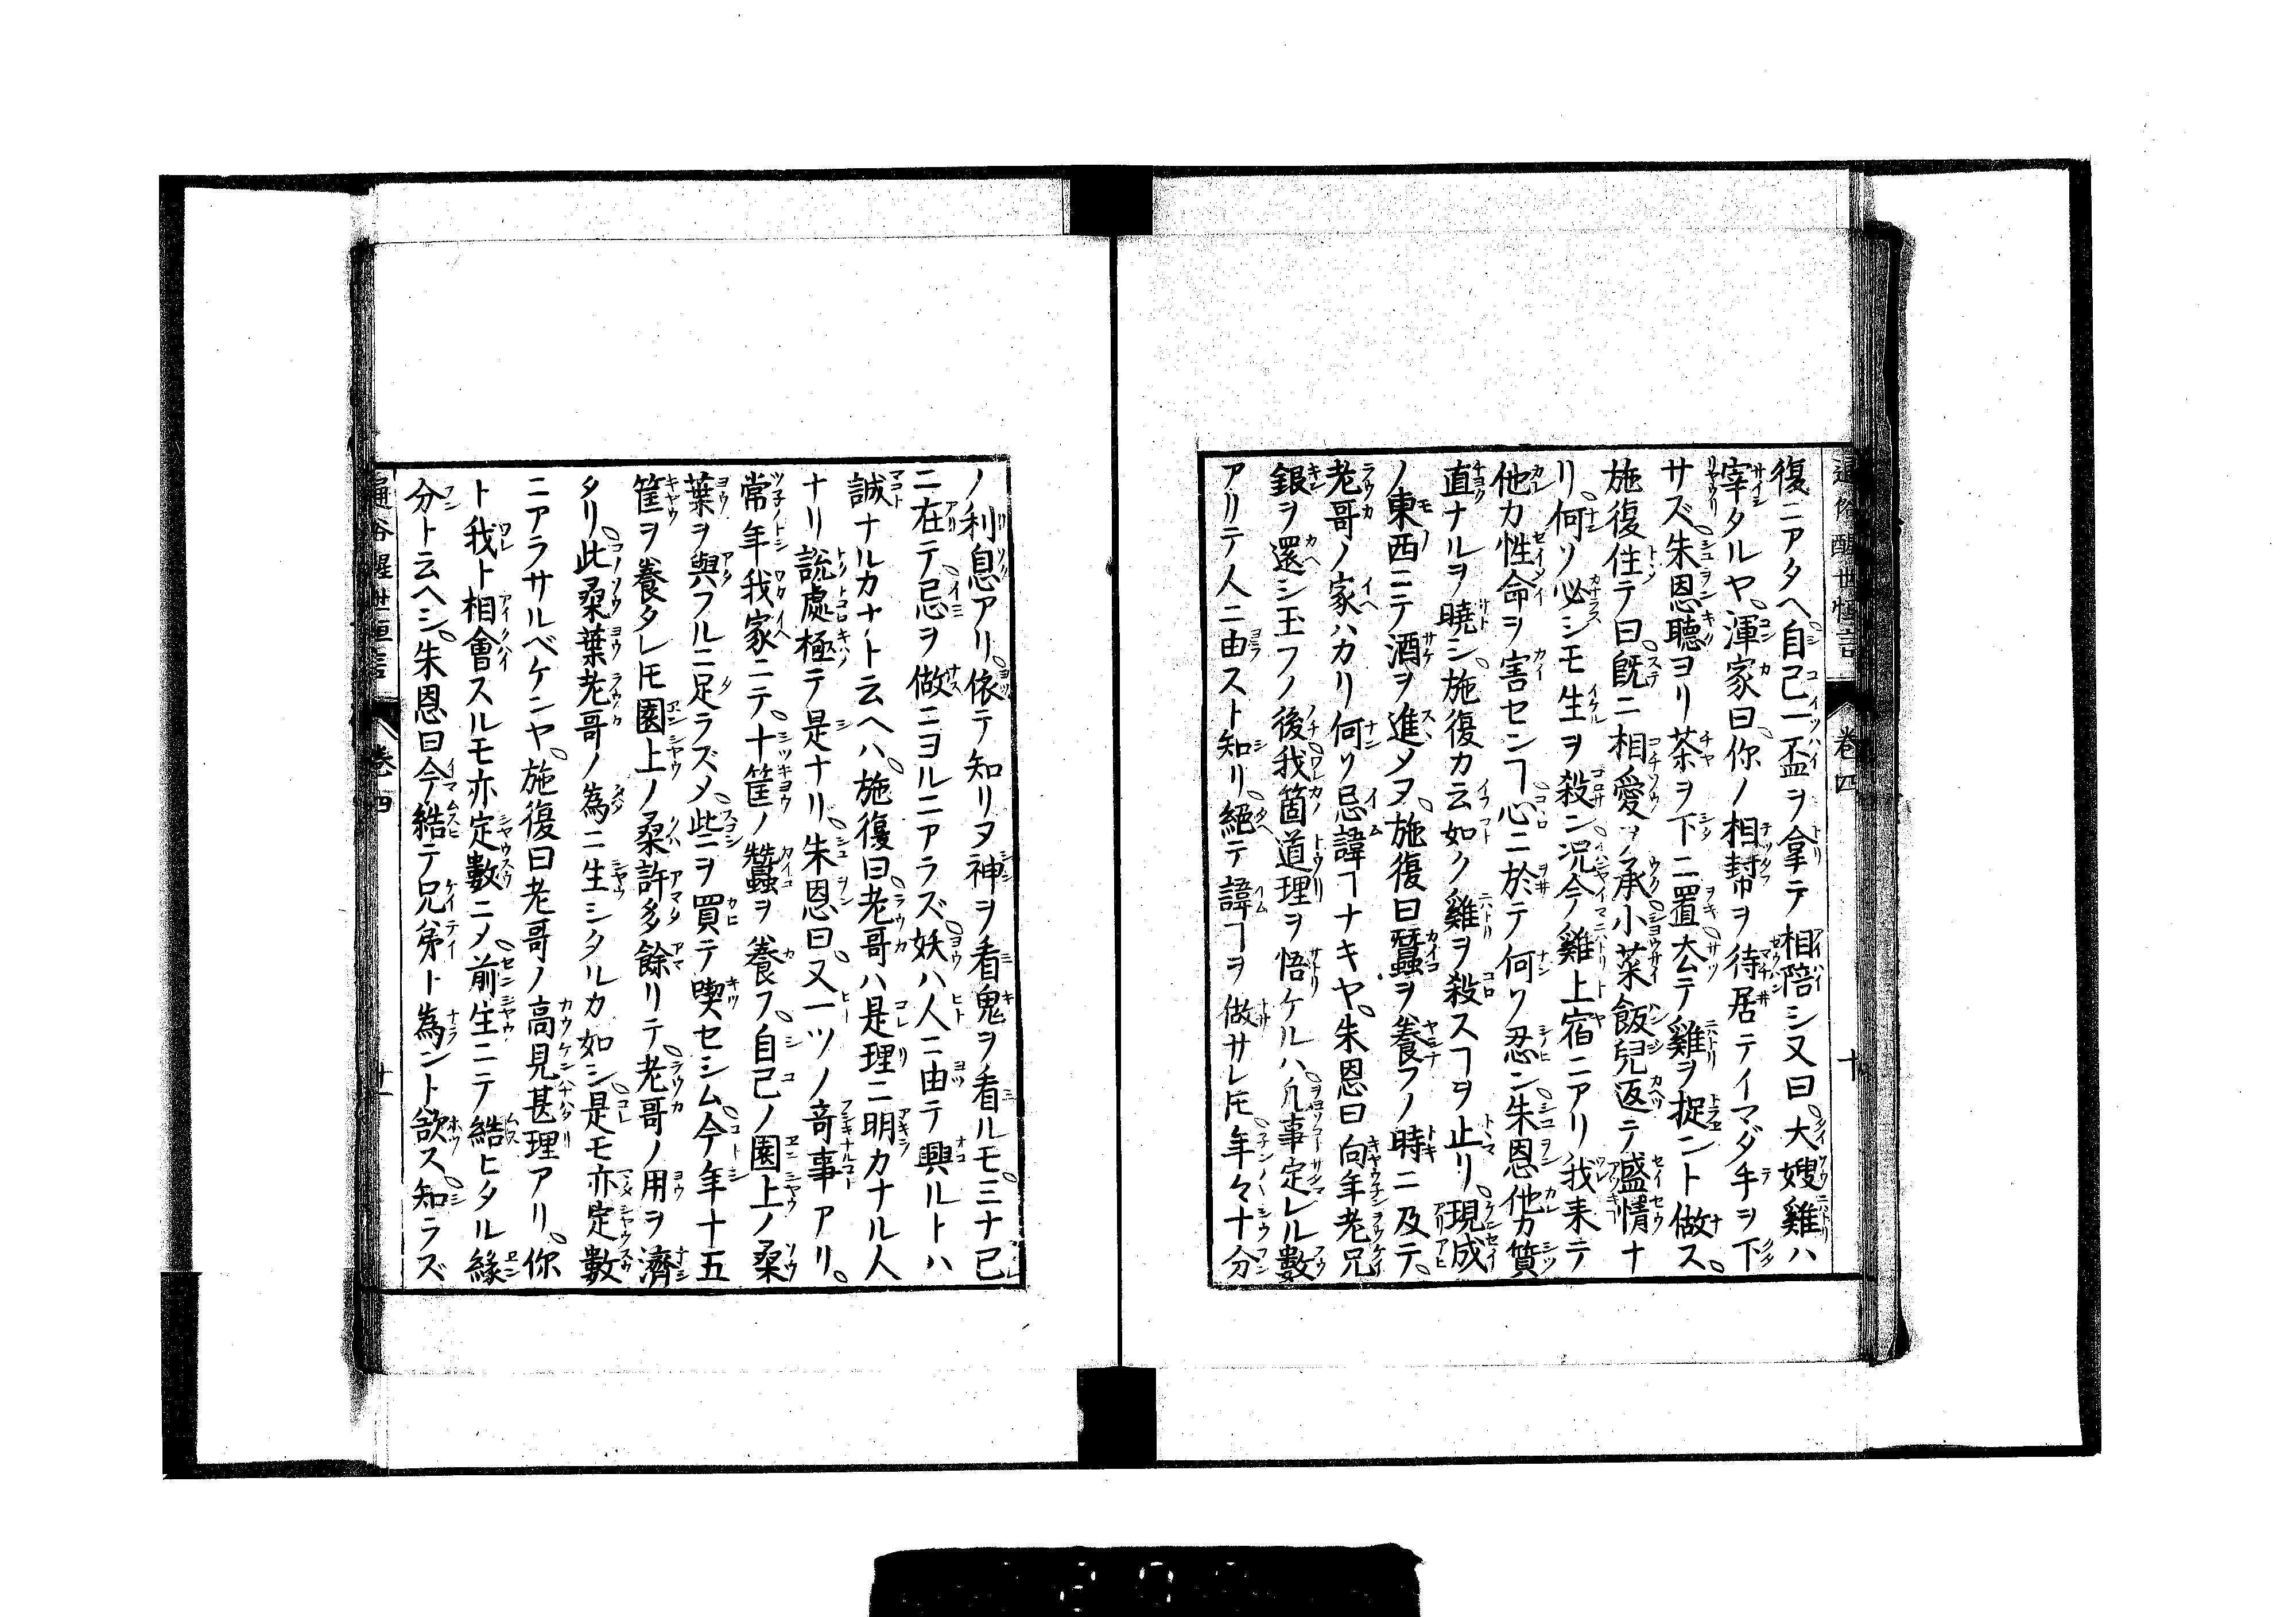 通俗醒世恒言 卷四 十
復ニアタヘ自己一盃ヲ拿テ相陪シ又曰大嫂雞ハ
宰タルヤ渾家曰你ノ相幇ヲ待居テイマダ手ヲ下
サズ朱恩聴ヨリ茶ヲ下ニ置去テ雞ヲ捉ント做ス
施復住テ曰既ニ相愛ヲ承小菜飯兒返テ盛情ナ
リ何ソ必シモ生ヲ殺ン况今雞上宿ニアリ我来テ
他カ性命ヲ害センヿ心ニ於テ何ソ忍ン朱恩他カ質
直ナルヲ曉シ施復カ云如ク雞ヲ殺スヿヲ止リ現成
ノ東西ニテ酒ヲ進メヌ施復曰蠶ヲ養フノ時ニ及テ
老哥ノ家ハカリ何ソ忌諱ヿナキヤ朱恩曰向年老兄
銀ヲ還シ玉フノ後我箇道理ヲ悟ケルハ凢事定レル數
アリテ人ニ由スト知リ絕テ諱ヿヲ做サレ𪜈年々十分
ノ利息アリ依テ知リヌ神ヲ看鬼ヲ看ルモ三ナ己
ニ在テ忌ヲ做ニヨルニアラズ妖ハ人ニ由テ興ルトハ
誠ナルカナト云ヘハ施復曰老哥ハ是理ニ明カナル人
ナリ説處極テ是ナリ朱恩曰又一ツノ竒事アリ
常年我家ニテ十筐ノ蠶ヲ養フ自己ノ園上ノ桑
葉ヲ與フルニ足ラズメ些ヲ買テ喫セシム今年十五
筐ヲ養タレ𪜈園上ノ桑許多餘リテ老哥ノ用ヲ濟
タリ此桑葉老哥ノ為ニ生シタルカ如シ是モ亦定數
ニアラサルベケンヤ施復曰老哥ノ高見甚理アリ你
ト我ト相會スルモ亦定數ニメ前生ニテ結ヒタル緣
分ト云ヘシ朱恩曰今結テ兄弟ト為ント欲ス知ラズ
通俗醒世恒言 卷四 十一